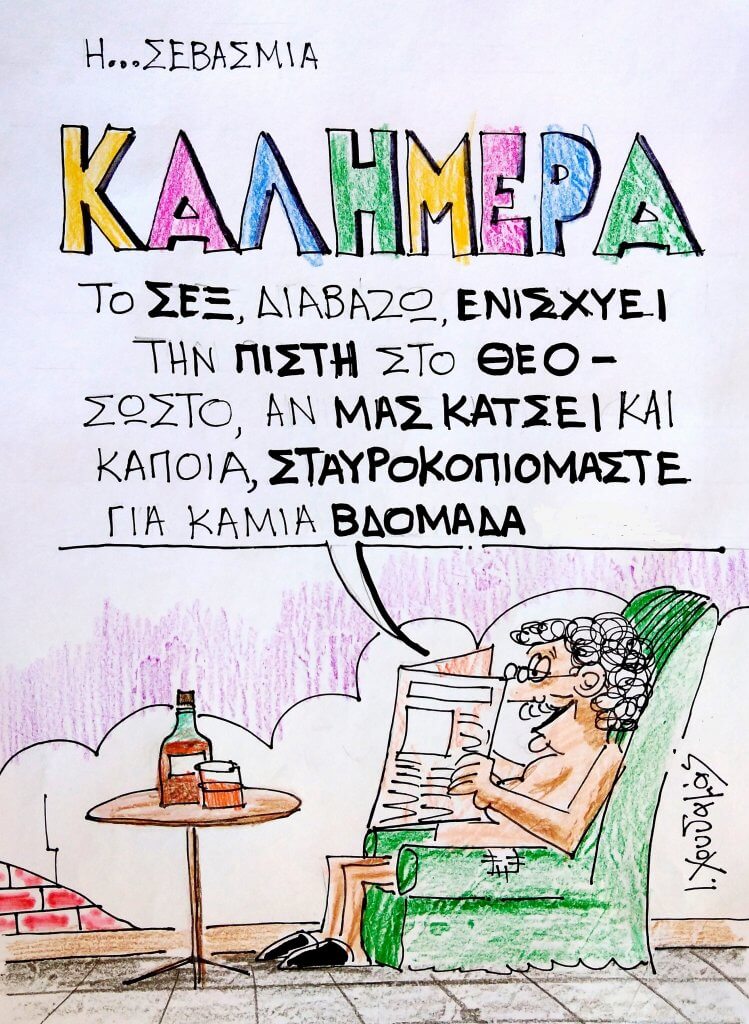 Η...ΣΕΒΑΣΜΙΑ
ΚΑΛΗΜΕΡΑ
ΤΟ ΣΕΞ, ΔΙΑΒΑΖΩ, ΕΝΙΣΧΥΕΙ
ΤΗΝ ΠΙΣΤΗ ΣΤΟ ΘΕΟ -
ΣΩΣΤΟ, ΑΝ ΜΑΣ ΚΑΤΣΕΙ ΚΑΙ
ΚΑΠΟΙΑ, ΣΤΑΥΡΟΚΟΠΙΟΜΑΣΤΕ
ΓΙΑ ΚΑΜΙΑ ΒΔΟΜΑΔΑ
Ι. Χουδαλάς